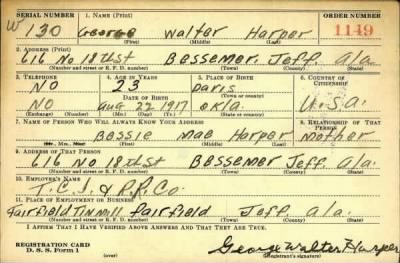 SERIAL NUMBER 1. NAME (Print) ORDER NUMBER
W 130 George Walter Harper 1149
(First) (Middle) (Last)
2. ADDRESS (Print)
616 No 18th St Bessemer, Jeff, Ala.
(Number and street or R. F. D. number) (Town) (County) (State)
3. TELEPHONE 4. AGE IN YEARS 5. PLACE OF BIRTH 6. COUNTRY OF CITIZENSHIP
NO 23 Davis
DATE OF BIRTH (Town or county)
NO Aug 22 1917 Okla. U.S.A.
(Exchange) (Number) (Mo.) (Day) (Yr.) (State or country)
7. NAME OF PERSON WHO WILL ALWAYS KNOW YOUR ADDRESS 8. RELATIONSHIP OF THAT PERSON
Bessie Mae Harper Mother
(Mr., Mrs., Miss) (First) (Middle) (Last)
9. ADDRESS OF THAT PERSON
616 No 18th St Bessemer Jeff. Ala.
(Number and street or R. F. D. number) (Town) (County) (State)
10. EMPLOYER'S NAME
T. C. I. & R.R. Co.
11. PLACE OF EMPLOYMENT OR BUSINESS
Fairfield Tin Mill Fairfield Jeff Ala.
(Number and street or R. F. D. number) (Town) (County) (State)
I AFFIRM THAT I HAVE VERIFIED ABOVE ANSWERS AND THAT THEY ARE TRUE.
REGISTRATION CARD
D. S. S. Form 1 (over) George Walter Harper
(Registrant's signature)